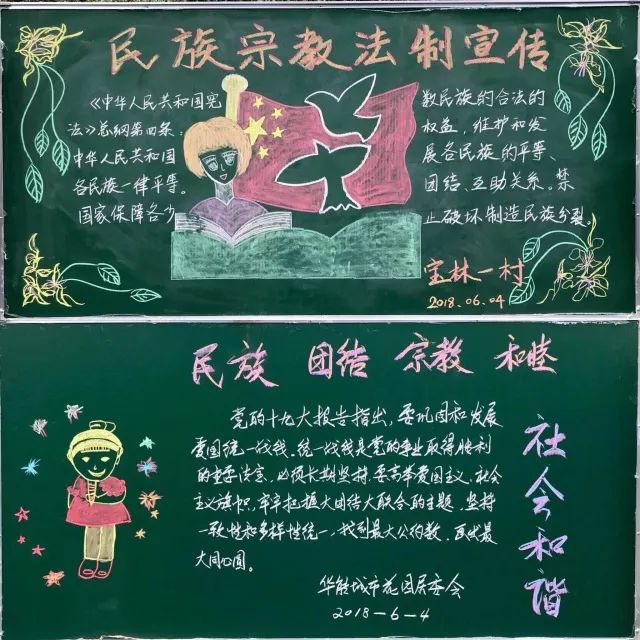 民族宗教法制宣传
《中华人民共和国宪
法》总纲第四条:
中华人民共和国
各民族一律平等。
国家保障各少
数民族的合法的
权益,维护和发
展各民族的平等、
团结、互助关系。禁
止破坏制造民族分裂
宝林一村
2018.06.04
民族 团结 宗教 和睦
党的十九大报告指出,要巩固和发展
爱国统一战线。统一战线是党的事业取得胜利
的重要法宝,必须长期坚持。要高举爱国主义、社会
主义旗帜,牢牢把握大团结大联合的主题,坚持
一致性和多样性统一,找到最大公约数,画出最
大同心圆。
华能城市花园居委会
2018-6-4
社会和谐